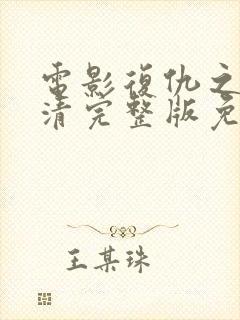 電影復仇之
清完整版免
王某珠